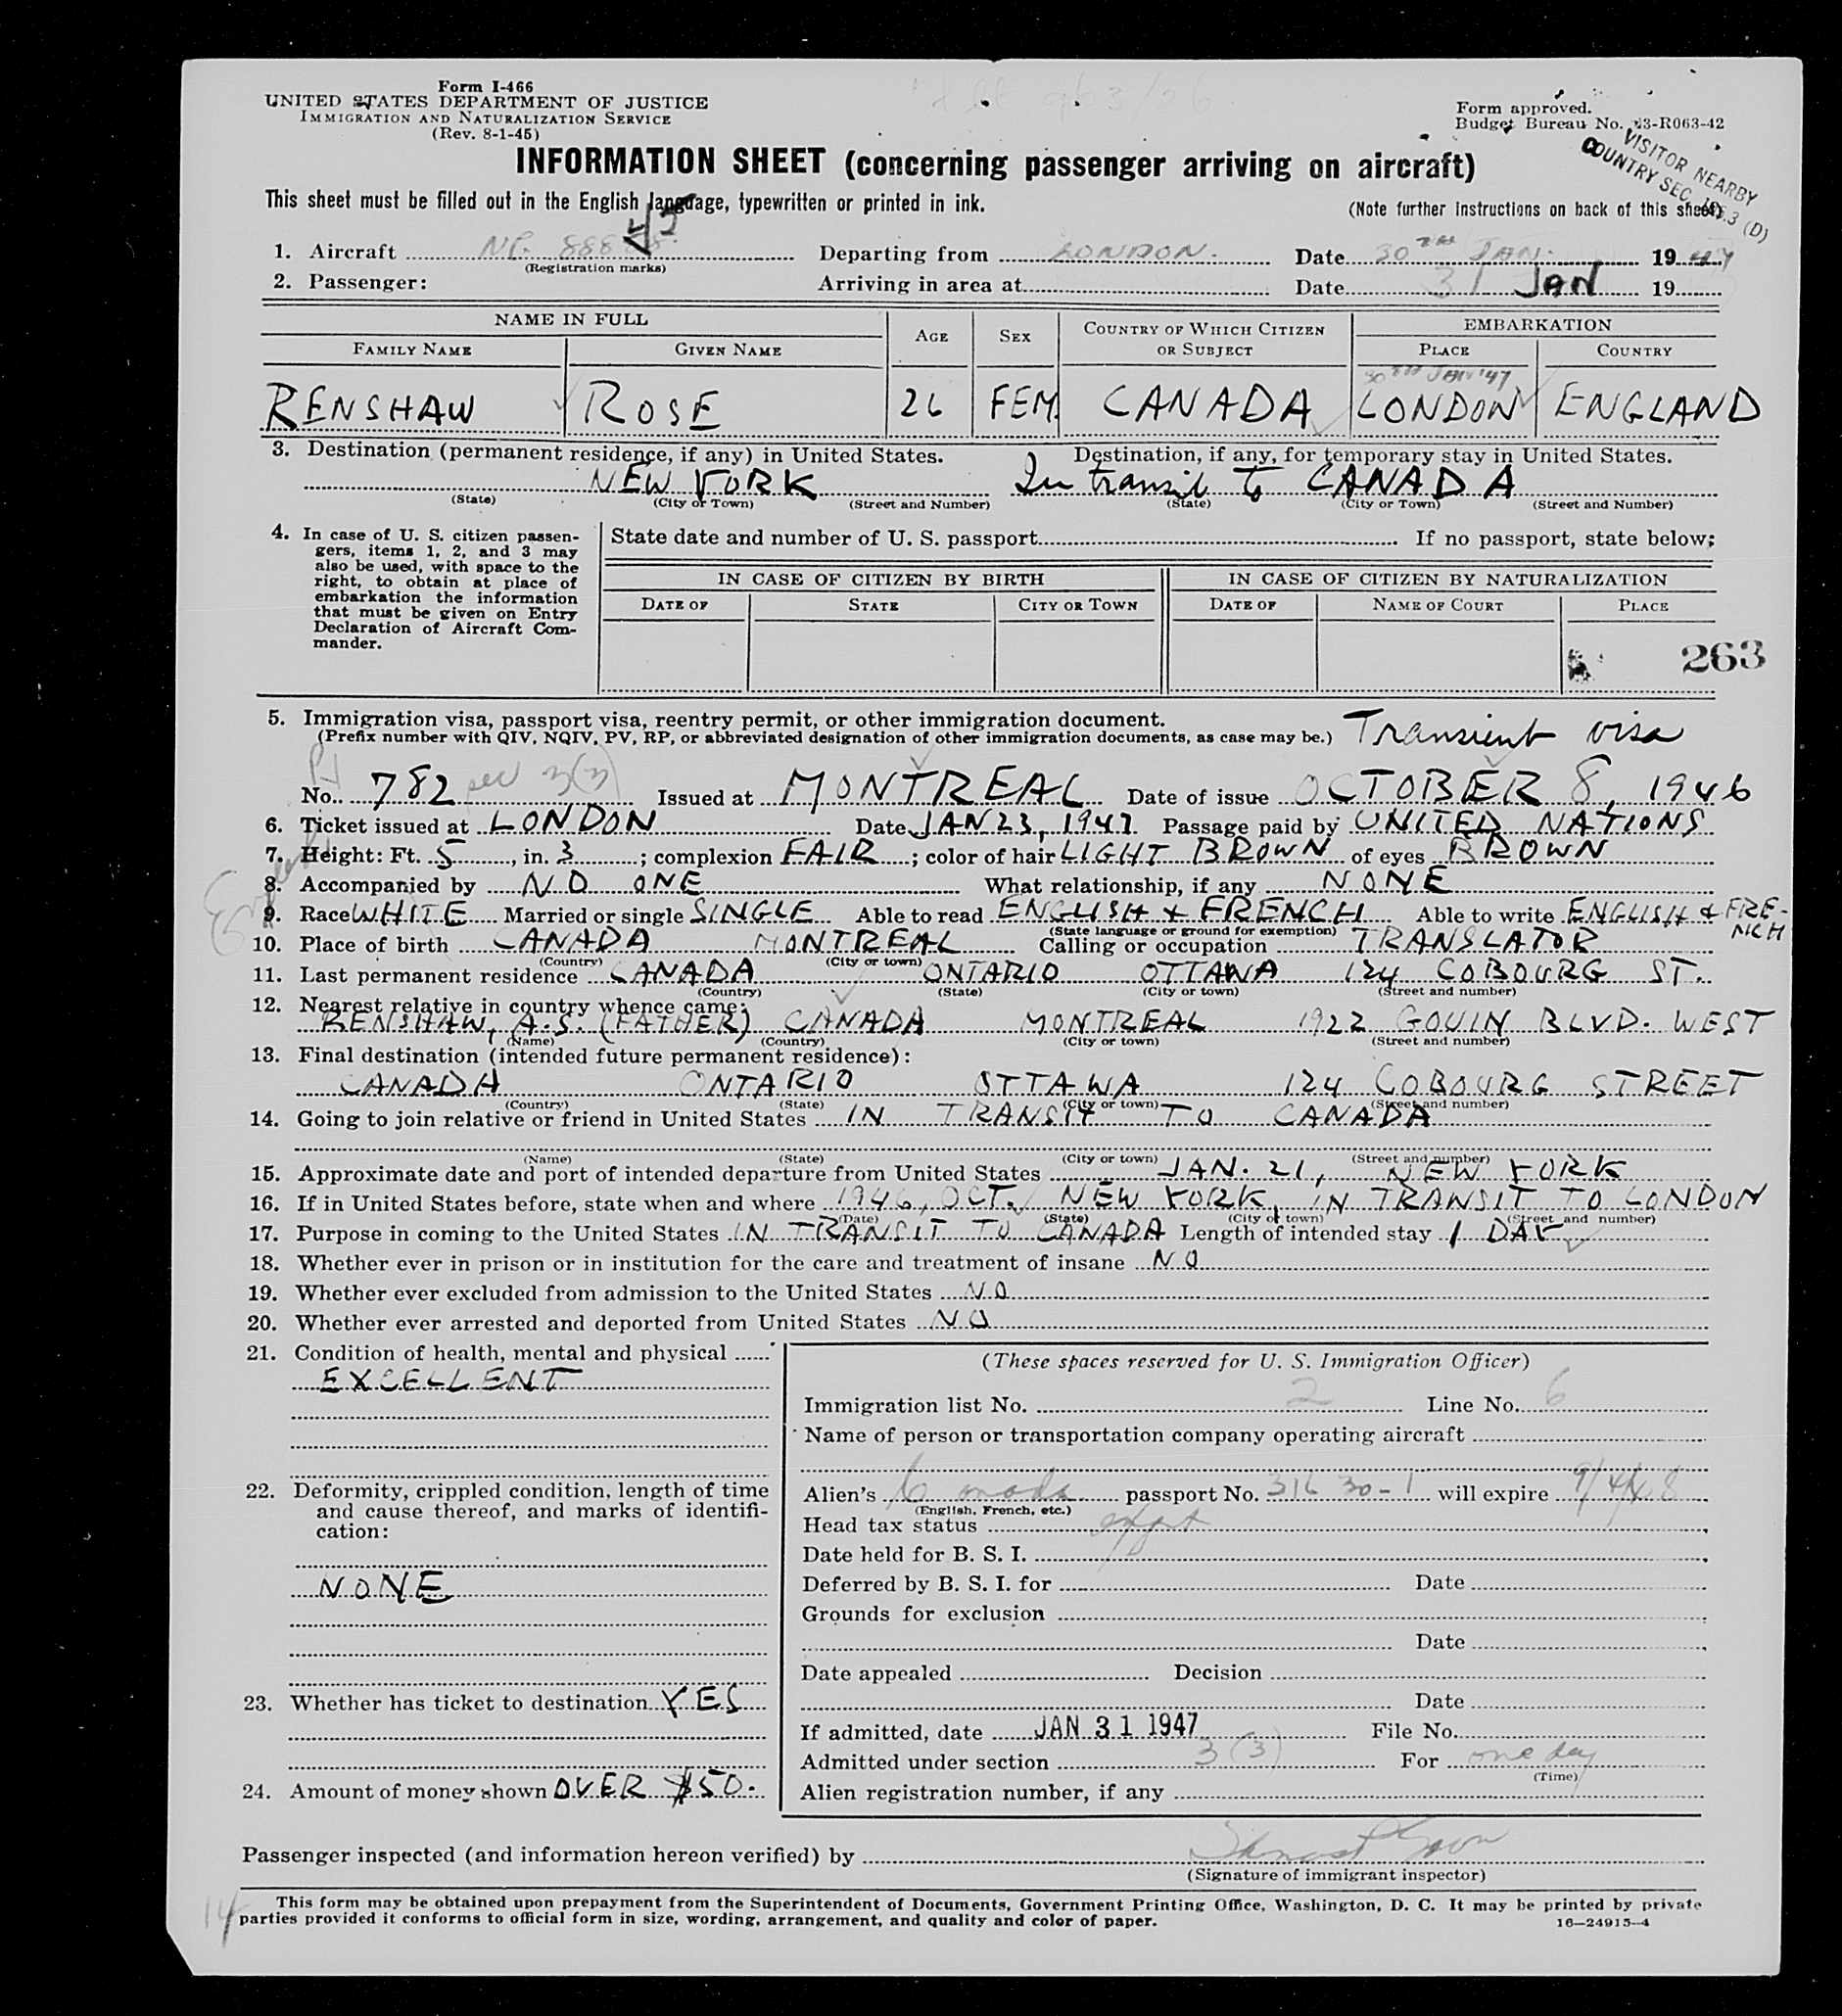 Form I-466
UNITED STATES DEPARTMENT OF JUSTICE
IMMIGRATION AND NATURALIZATION SERVICE
(Rev. 8-1-45)
Form approved.
Budget Bureau No. 43-R063-42
VISITOR NEARBY
COUNTRY SEC. 165.3 (D)
INFORMATION SHEET (concerning passenger arriving on aircraft)
This sheet must be filled out in the English language, typewritten or printed in ink. (Note further instructions on back of this sheet)
45
1. Aircraft NC. 888 Departing from LONDON. Date 30TH JAN. 1947
(Registration marks)
2. Passenger: Arriving in area at Date 31 JAN 19
NAME IN FULL AGE SEX COUNTRY OF WHICH CITIZEN OR SUBJECT EMBARKATION
FAMILY NAME GIVEN NAME PLACE COUNTRY
30TH JAN '47
RENSHAW ROSE 26 FEM. CANADA LONDON ENGLAND
3. Destination (permanent residence, if any) in United States. Destination, if any, for temporary stay in United States.
NEW YORK In transit to CANADA
(State) (City or Town) (Street and Number) (State) (City or Town) (Street and Number)
4. In case of U. S. citizen passen-
gers, items 1, 2, and 3 may
also be used, with space to the
right, to obtain at place of
embarkation the information
that must be given on Entry
Declaration of Aircraft Com-
mander.
State date and number of U. S. passport If no passport, state below;
IN CASE OF CITIZEN BY BIRTH IN CASE OF CITIZEN BY NATURALIZATION
DATE OF STATE CITY OR TOWN DATE OF NAME OF COURT PLACE
263
5. Immigration visa, passport visa, reentry permit, or other immigration document.
(Prefix number with QIV, NQIV, PV, RP, or abbreviated designation of other immigration documents, as case may be.) Transient visa
No. 782 sec 3(3) Issued at MONTREAL Date of issue OCTOBER 8, 1946
6. Ticket issued at LONDON Date JAN 23, 1947 Passage paid by UNITED NATIONS
7. Height: Ft. 5, in. 3; complexion FAIR; color of hair LIGHT BROWN of eyes BROWN
8. Accompanied by NO ONE What relationship, if any NONE
English
9. Race WHITE Married or single SINGLE Able to read ENGLISH & FRENCH Able to write ENGLISH & FRE-
NCH
(State language or ground for exemption)
10. Place of birth CANADA MONTREAL Calling or occupation TRANSLATOR
(Country) (City or town)
11. Last permanent residence CANADA ONTARIO OTTAWA 124 COBOURG ST.
(Country) (State) (City or town) (Street and number)
12. Nearest relative in country whence came:
RENSHAW, A.S. (FATHER) CANADA MONTREAL 1922 GOUIN BLVD. WEST
(Name) (Country) (City or town) (Street and number)
13. Final destination (intended future permanent residence):
CANADA ONTARIO OTTAWA 124 COBOURG STREET
(Country) (State) (City or town) (Street and number)
14. Going to join relative or friend in United States IN TRANSIT TO CANADA
(Name) (State) (City or town) (Street and number)
15. Approximate date and port of intended departure from United States JAN. 21, NEW YORK
16. If in United States before, state when and where 1946, OCT. NEW YORK, IN TRANSIT TO LONDON
(Date) (State) (City or town) (Street and number)
17. Purpose in coming to the United States IN TRANSIT TO CANADA Length of intended stay 1 DAY
18. Whether ever in prison or in institution for the care and treatment of insane NO
19. Whether ever excluded from admission to the United States NO
20. Whether ever arrested and deported from United States NO
21. Condition of health, mental and physical
EXCELLENT
22. Deformity, crippled condition, length of time
and cause thereof, and marks of identifi-
cation:
NONE
23. Whether has ticket to destination YES
24. Amount of money shown OVER $50.
(These spaces reserved for U. S. Immigration Officer)
Immigration list No. 2 Line No. 6
Name of person or transportation company operating aircraft
Alien's Canada passport No. 316 30-1 will expire 9/4/48
(English, French, etc.)
Head tax status exempt
Date held for B. S. I.
Deferred by B. S. I. for Date
Grounds for exclusion
Date
Date appealed Decision
Date
If admitted, date JAN 31 1947 File No.
Admitted under section 3 (3) For one day
(Time)
Alien registration number, if any
Passenger inspected (and information hereon verified) by
(Signature of immigrant inspector)
14
This form may be obtained upon prepayment from the Superintendent of Documents, Government Printing Office, Washington, D. C. It may be printed by private
parties provided it conforms to official form in size, wording, arrangement, and quality and color of paper. 16—24915-4